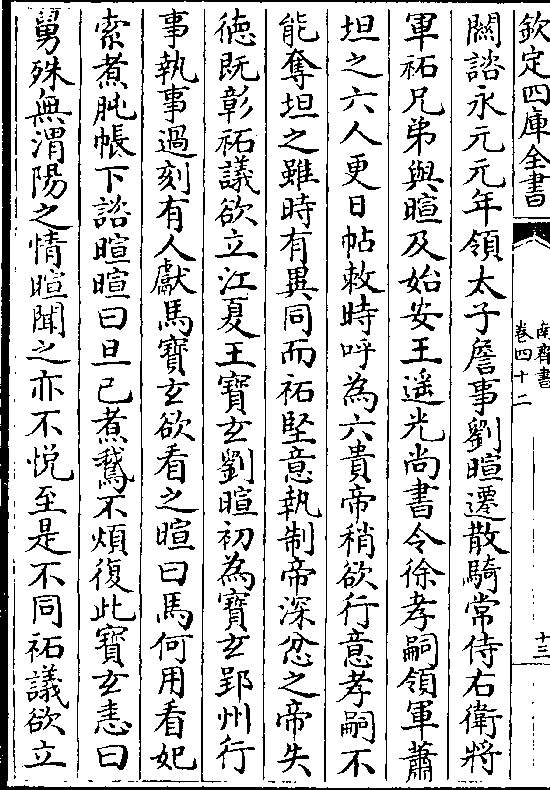 欽定四庫全書
南齊書
卷四十二
十三
關諮永元元年領太子詹事劉暄遷散騎常侍右衛將
軍祏兄弟與暄及始安王遥光尚書令徐孝嗣領軍蕭
坦之六人更日帖敕時呼為六貴帝稍欲行意孝嗣不
能奪坦之雖時有異同而祏堅意執制帝深忿之帝失
徳既彰祏議欲立江夏王寳𤣥劉暄初為寳𤣥郢州行
事執事過刻有人獻馬寳𤣥欲看之暄曰馬何用看妃
索煮肫帳下諮暄暄曰旦已煮鵞不煩復此寳𤣥恚曰
舅殊無渭陽之情暄聞之亦不悦至是不同祏議欲立